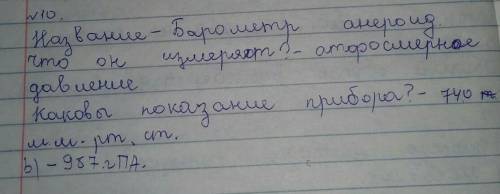 №10.
Название - Барометр анероид.
что он измеряют? - атфосмерное
давление
Каковы показание прибора? - 740
м.м. рт. ст.
b) - 987. гПА.